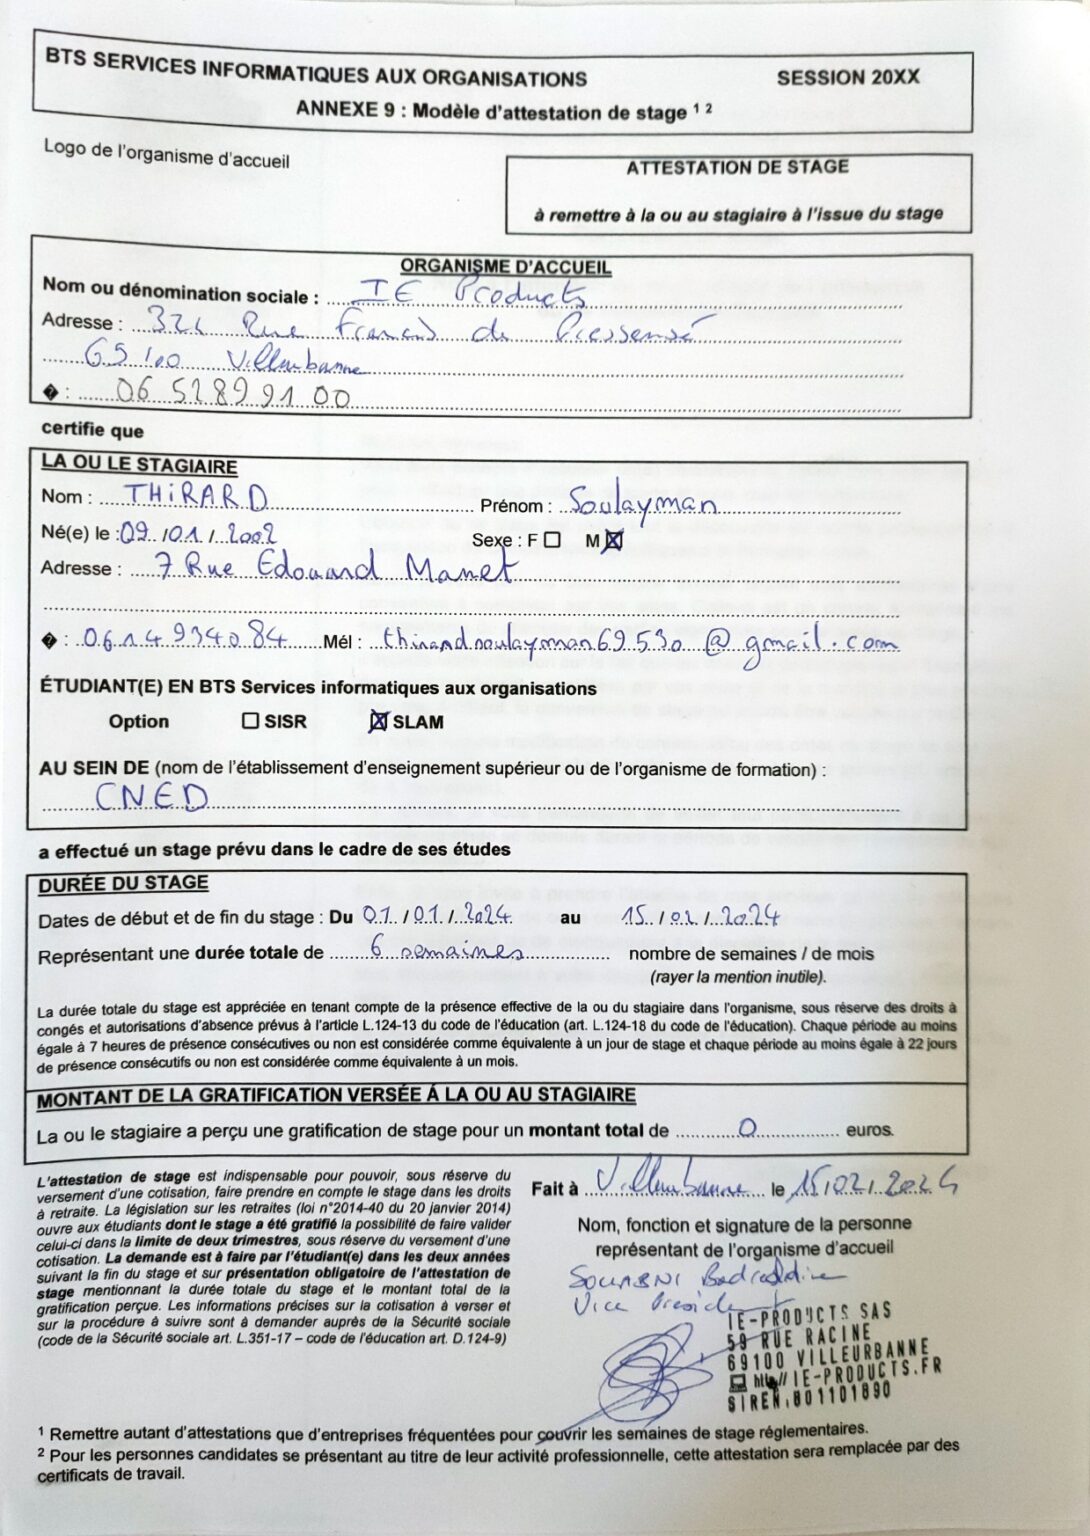 BTS SERVICES INFORMATIQUES AUX ORGANISATIONS SESSION 20XX
ANNEXE 9 : Modèle d'attestation de stage ¹ ²
Logo de l'organisme d'accueil
ATTESTATION DE STAGE
à remettre à la ou au stagiaire à l'issue du stage
ORGANISME D'ACCUEIL
Nom ou dénomination sociale : IE Products
Adresse : Rue Francis de Pressensé
Villeurbanne
� : 06 52 89 91 00
certifie que
LA OU LE STAGIAIRE
Nom : THIRARD Prénom : Soulayman
Né(e) le : 09 / 01 / 2002 Sexe : F ☐ M ☒
Adresse : 7 Rue Edouard Manet
� : 0614934084 Mél : thirardsoulayman69530@gmail.com
ÉTUDIANT(E) EN BTS Services informatiques aux organisations
Option ☐ SISR ☒ SLAM
AU SEIN DE (nom de l'établissement d'enseignement supérieur ou de l'organisme de formation) :
CNED
a effectué un stage prévu dans le cadre de ses études
DURÉE DU STAGE
Dates de début et de fin du stage : Du 01 / 01 / 2024 au 15 / 02 / 2024
Représentant une durée totale de 6 semaines nombre de semaines / de mois
(rayer la mention inutile).
La durée totale du stage est appréciée en tenant compte de la présence effective de la ou du stagiaire dans l'organisme, sous réserve des droits à
congés et autorisations d'absence prévus à l'article L.124-13 du code de l'éducation (art. L.124-18 du code de l'éducation). Chaque période au moins
égale à 7 heures de présence consécutives ou non est considérée comme équivalente à un jour de stage et chaque période au moins égale à 22 jours
de présence consécutifs ou non est considérée comme équivalente à un mois.
MONTANT DE LA GRATIFICATION VERSÉE À LA OU AU STAGIAIRE
La ou le stagiaire a perçu une gratification de stage pour un montant total de 0 euros.
L'attestation de stage est indispensable pour pouvoir, sous réserve du
versement d'une cotisation, faire prendre en compte le stage dans les droits
à retraite. La législation sur les retraites (loi n°2014-40 du 20 janvier 2014)
ouvre aux étudiants dont le stage a été gratifié la possibilité de faire valider
celui-ci dans la limite de deux trimestres, sous réserve du versement d'une
cotisation. La demande est à faire par l'étudiant(e) dans les deux années
suivant la fin du stage et sur présentation obligatoire de l'attestation de
stage mentionnant la durée totale du stage et le montant total de la
gratification perçue. Les informations précises sur la cotisation à verser et
sur la procédure à suivre sont à demander auprès de la Sécurité sociale
(code de la Sécurité sociale art. L.351-17 – code de l'éducation art. D.124-9)
Fait à Villeurbanne le 15/02/2024
Nom, fonction et signature de la personne
représentant de l'organisme d'accueil
SOUABNI Badreddine
Vice Président
IE-PRODUCTS SAS
59 RUE RACINE
69100 VILLEURBANNE
http://IE-PRODUCTS.FR
SIREN:801101890
¹ Remettre autant d'attestations que d'entreprises fréquentées pour couvrir les semaines de stage réglementaires.
² Pour les personnes candidates se présentant au titre de leur activité professionnelle, cette attestation sera remplacée par des
certificats de travail.